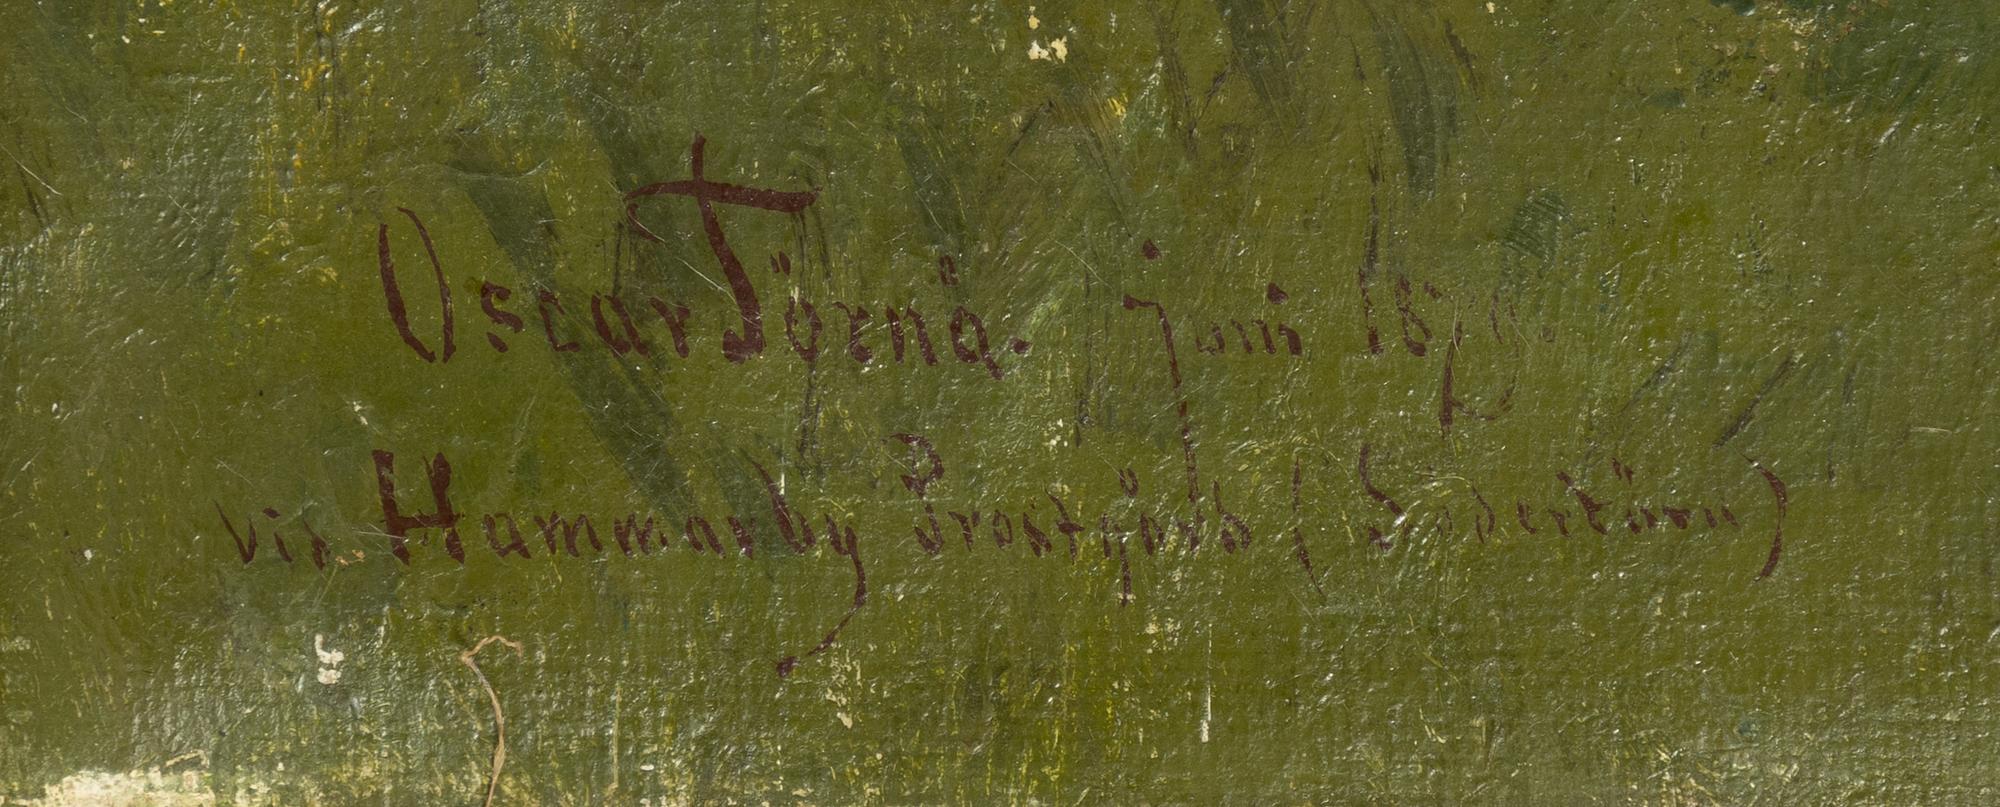 Oscar Törnå. juni 1879.
vid Hammarby Prostgård (Södertörn)